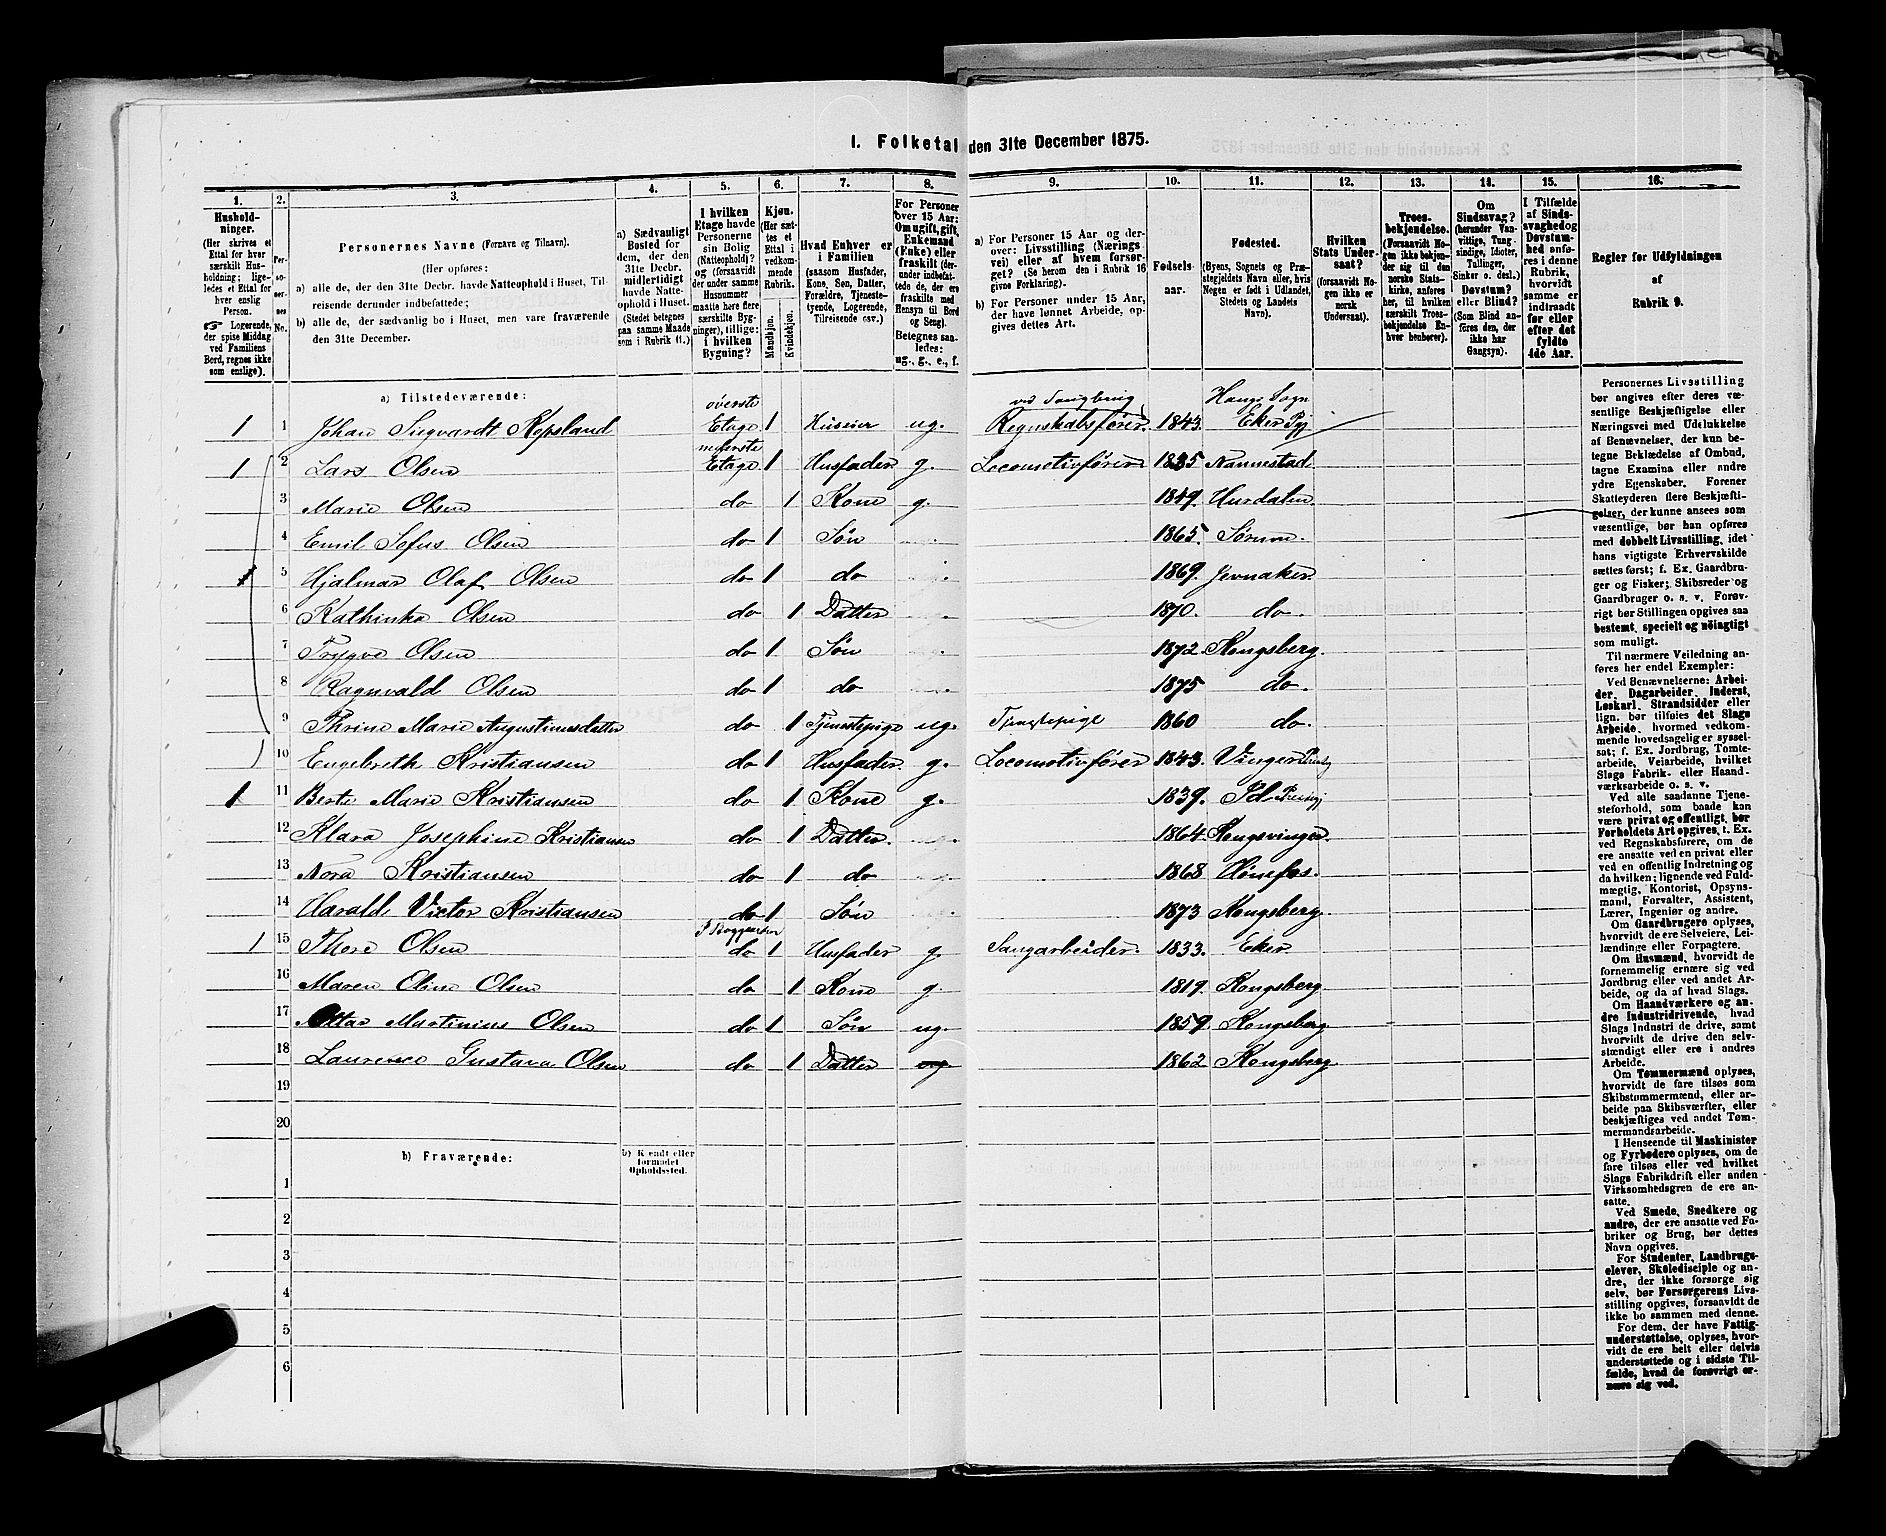 I. Folketal den 31te December 1875.
1. 2. 3. 4. 5. 6. 7. 8. 9. 10. 11. 12. 13. 14. 15. 16.
Husholdninger.
(Her skrives et
Ettal for hver
særskilt Husholdning;
ligeledes et Ettal for
hver enslig
Person.
☞ Logerende,
der spise Middag
ved Familiens
Bord, regnes ikke
som enslige).
Personernes No.
Personernes Navne (Fornavn og Tilnavn).
(Her opføres:
a) alle de, der den 31te Decbr. havde Natteophold i Huset, Tilreisende derunder indbefattede;
b) alle de, der sædvanlig bo i Huset, men vare fraværende
den 31te December.
a) Sædvanligt
Bosted for
dem, der den
31te Decbr.
midlertidigt
havde Natteophold i Huset.
(Stedet betegnes
paa samme Maade
som i Rubrik 11.)
I hvilken
Etage havde
Personerne
sin Bolig
(Natteophold)?
og (forsaavidt
der under samme
Husnummer
maatte høre flere
særskilte Bygninger), tillige:
i hvilken
Bygning?
Kjøn.
(Her sættes et
Ettal i
vedkommende
Rubrik.
Mandkjøn.
Kvindekjøn.
Hvad Enhver er
i Familien
(saasom Husfader,
Kone, Søn, Datter,
Forældre, Tjenestetyende, Logerende,
Tilreisende osv.)
For Personer
over 15 Aar:
Om ugift, gift,
Enkemand
(Enke) eller
fraskilt (derunder indbefattede de, der ere
fraskilte med
Hensyn til Bord
og Seng).
Betegnes saaledes:
ug., g., e., f.
a) For Personer 15 Aar og derover: Livsstilling (Næringsvei) eller af hvem forsørget? (Se herom den i Rubrik 16
givne Forklaring).
b) For Personer under 15 Aar,
der have lønnet Arbeide, opgives dettes Art.
Fødselsaar.
Fødested.
(Byens, Sognets og Præstegjeldets Navn eller, hvis
Nogen er født i Udlandet,
Stedets og Landets
Navn).
Hvilken
Stats Undersaat?
(forsaavidt Nogen ikke er
norsk
Undersaat).
Troesbekjendelse.
(Forsaavidt Nogen ikke bekjender sig til den
norske Statskirke, anføres
her, til hvilken
særskilt Troesbekjendelse Enhver henhører).
Om
Sindssvag?
(herunder Vanvittige, Tungsindige, Idioter,
Tullinger,
Sinker o. desl.)
Døvstum?
eller Blind?
(Som Blind anføres den, der
ikke har
Gangsyn).
I Tilfælde
af Sindssvaghed og
Døvstumhed anføres i denne
Rubrik,
hvorvidt
samme er
indtraadt
før eller
efter det
fyldte
4de Aar.
Regler for Udfyldningen
af
Rubrik 9.
a) Tilstedeværende:
1 1 Johan Sigvardt Kopsland øverste Etage 1 Huseier ug. Regnskabsfører 1843. Eker
2 1 Lars Olsen nederste Etage 1 Husfader g. Locomotivfører 1835 Nannestad
3 Marie Olsen do 1 Kone g. 1849. Hurdalen
4 Emil Sofus Olsen do 1 Søn 1865. Sørum.
5 Hjalmar Olaf Olsen do 1 do 1869. Jevnaker.
6 Kathinka Olsen do 1 Datter 1870. do.
7 Trygve Olsen do 1 Søn 1872 Kongsberg.
8 Ragnvald Olsen do 1 do 1875 do.
9 Thrine Marie Augustinusdatter do 1 Tjenstepige ug. Tjenstepige 1860 do.
10 Engebreth Kristiansen do 1 Husfader. g. Locomotivfører 1843. Vinger
1 11 Berte Marie Kristiansen do 1 Kone g. 1839. Id
12 Klara Josephine Kristiansen do 1 Datter. 1864. Kongsvinger
13 Nora Kristiansen do 1 do 1868 Hønefos.
14 Harald Victor Kristiansen do 1 Søn 1873 Kongsberg.
1 15 Thore Olsen do 1 Husfader g. Saugarbeider. 1833. Eker.
16 Maren Oline Olsen do 1 Kone g. 1819. Kongsberg
17 Ottar Martinius Olsen do 1 Søn ug. 1859. Kongsberg
18 Laurence Gustava Olsen do 1 Datter ug 1862 Kongsberg
19
20
b) Fraværende:
b) Kjendt eller
formodet
Opholdssted.
1
2
3
4
5
6
Personernes Livsstilling
bør angives efter deres væsentlige Beskjæftigelse eller
Næringsvei med Udelukkelse
af Benævnelser, der kun betegne Beklædelse af Ombud,
tagne Examina eller andre
ydre Egenskaber. Forener
Skatteyderen flere Beskjæftigelser, der kunne ansees som
væsentlige, bør han opføres
med dobbelt Livsstilling, idet
hans vigtigste Erhvervskilde
sættes først; f. Ex. Gaardbruger og Fisker; Skibsreder og
Gaardbruger o. s. v. Forøvrigt bør Stillingen opgives saa
bestemt, specielt og nöiagtigt
som muligt.
Til nærmere Veiledning anføres her endel Exempler:
Ved Benævnelserne: Arbeider, Dagarbeider, Inderst,
Løskarl, Strandsidder eller
lign. bør tilføies det Slags
Arbeide, hvormed vedkommende hovedsagelig er sysselsat; f. Ex. Jordbrug, Tomtearbeide, Veiarbeide, hvilket
Slags Fabrik- eller Haandværksarbeide o. s. v.
Ved alle saadanne Tjenesteforhold, som baade kan
være privat og offentligt, bør
Forholdets Art opgives, t. Ex.
ved Regnskabsførere, om de
ere ansatte ved en privat eller
ved en offentlig Indretning og
da hvilken; lignende ved Fuldmægtig, Kontorist, Opsynsmand, Forvalter, Assistent,
Lærer, Ingeniør og andre.
Om Gaardbrugere oplyses,
hvorvidt de ere Selveiere, Leilændinge eller Forpagtere.
Om Husmænd, hvorvidt de
fornemmelig ernære sig ved
Jordbrug eller ved andet Arbeide, og da af hvad Slags.
Om Haandværkere og andre Industridrivende, hvad
Slags Industri de drive, samt
hvorvidt de drive den selvstændigt eller ere i andres
Arbeide.
Om Tømmermænd oplyses,
hvorvidt de fare tilsøs som
Skibstømmermænd, eller arbeide paa Skibsværfter, eller
beskjæftiges ved andet Tømmermandsarbeide.
I Henseende til Maskinister
og Fyrbødere oplyses, om de
fare tilsøs eller ved hvilket
Slags Fabrikdrift eller anden
Virksomhedsgren de ere ansatte.
Ved Smede, Snedkere og
andre, der ere ansatte ved Fabriker og Brug, bør dettes
Navn opgives.
For Studenter, Landbrugselever, Skoledisciple og andre, der ikke forsørge sig
selv, bør Forsørgerens Livsstilling opgives, forsaavidt de
ikke bo sammen med denne.
For dem, der have Fattigunderstøttelse, oplyses, hvorvidt de ere helt eller delvis
understøttede og i sidste Tilfælde, hvad de forøvrigt ernære sig ved.